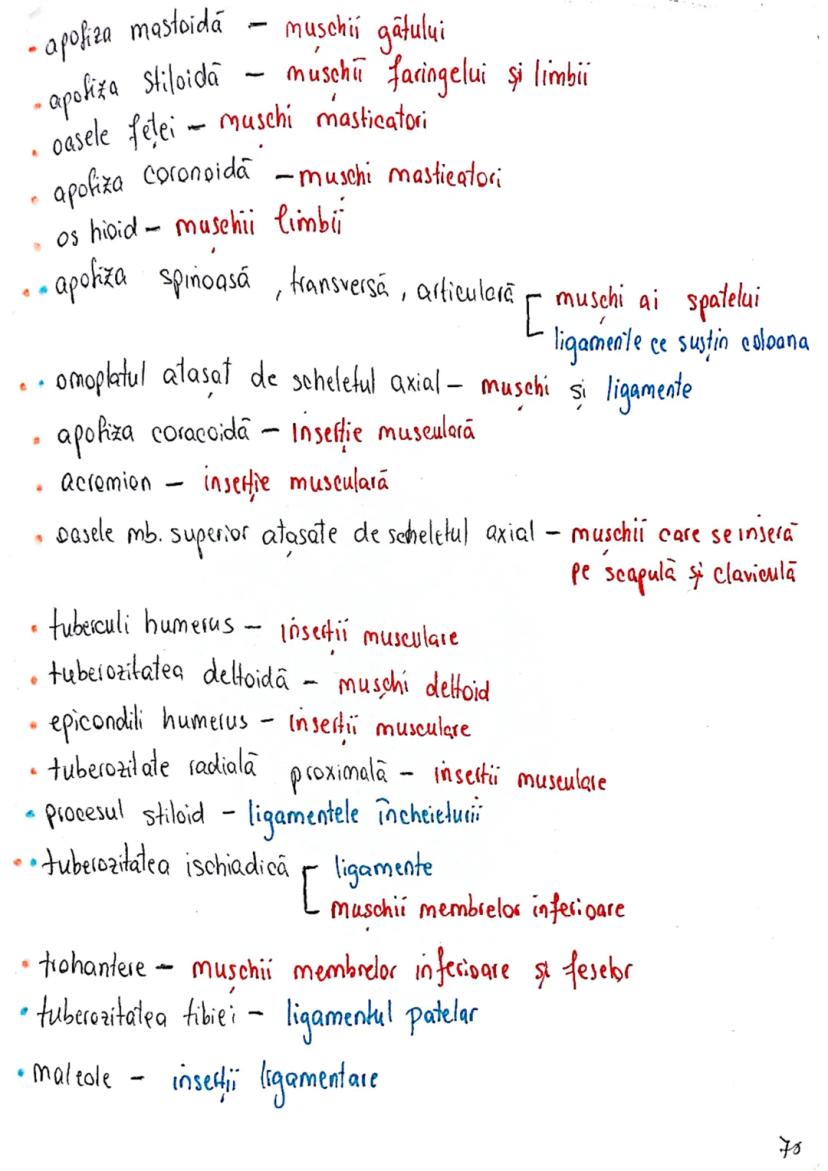 • apofiza mastoidă – mușchii gâtului
• apofiza stiloidă – mușchii faringelui și limbii
• oasele feței – mușchi masticatori
• apofiza coronoidă – mușchi masticatori
• os hioid – mușchii limbii
• • apofiza spinoasă, transversă, articulară [ mușchi ai spatelui
ligamente ce susțin coloana
• • omoplatul atașat de scheletul axial – mușchi și ligamente
• apofiza coracoidă – inserție musculară
• acromion – inserție musculară
• oasele mb. superior atașate de scheletul axial – mușchii care se inseră
pe scapulă și claviculă
• tuberculi humerus – inserții musculare
• tuberozitatea deltoidă – mușchi deltoid
• epicondili humerus – inserții musculare
• tuberozitate radială proximală – insertii musculare
• procesul stiloid – ligamentele încheieturii
• • tuberozitatea ischiadică [ ligamente
mușchii membrelor inferioare
• trohantere – mușchii membrelor inferioare și feselor
• tuberozitatea tibiei – ligamentul patelar
• maleole – inserții ligamentare